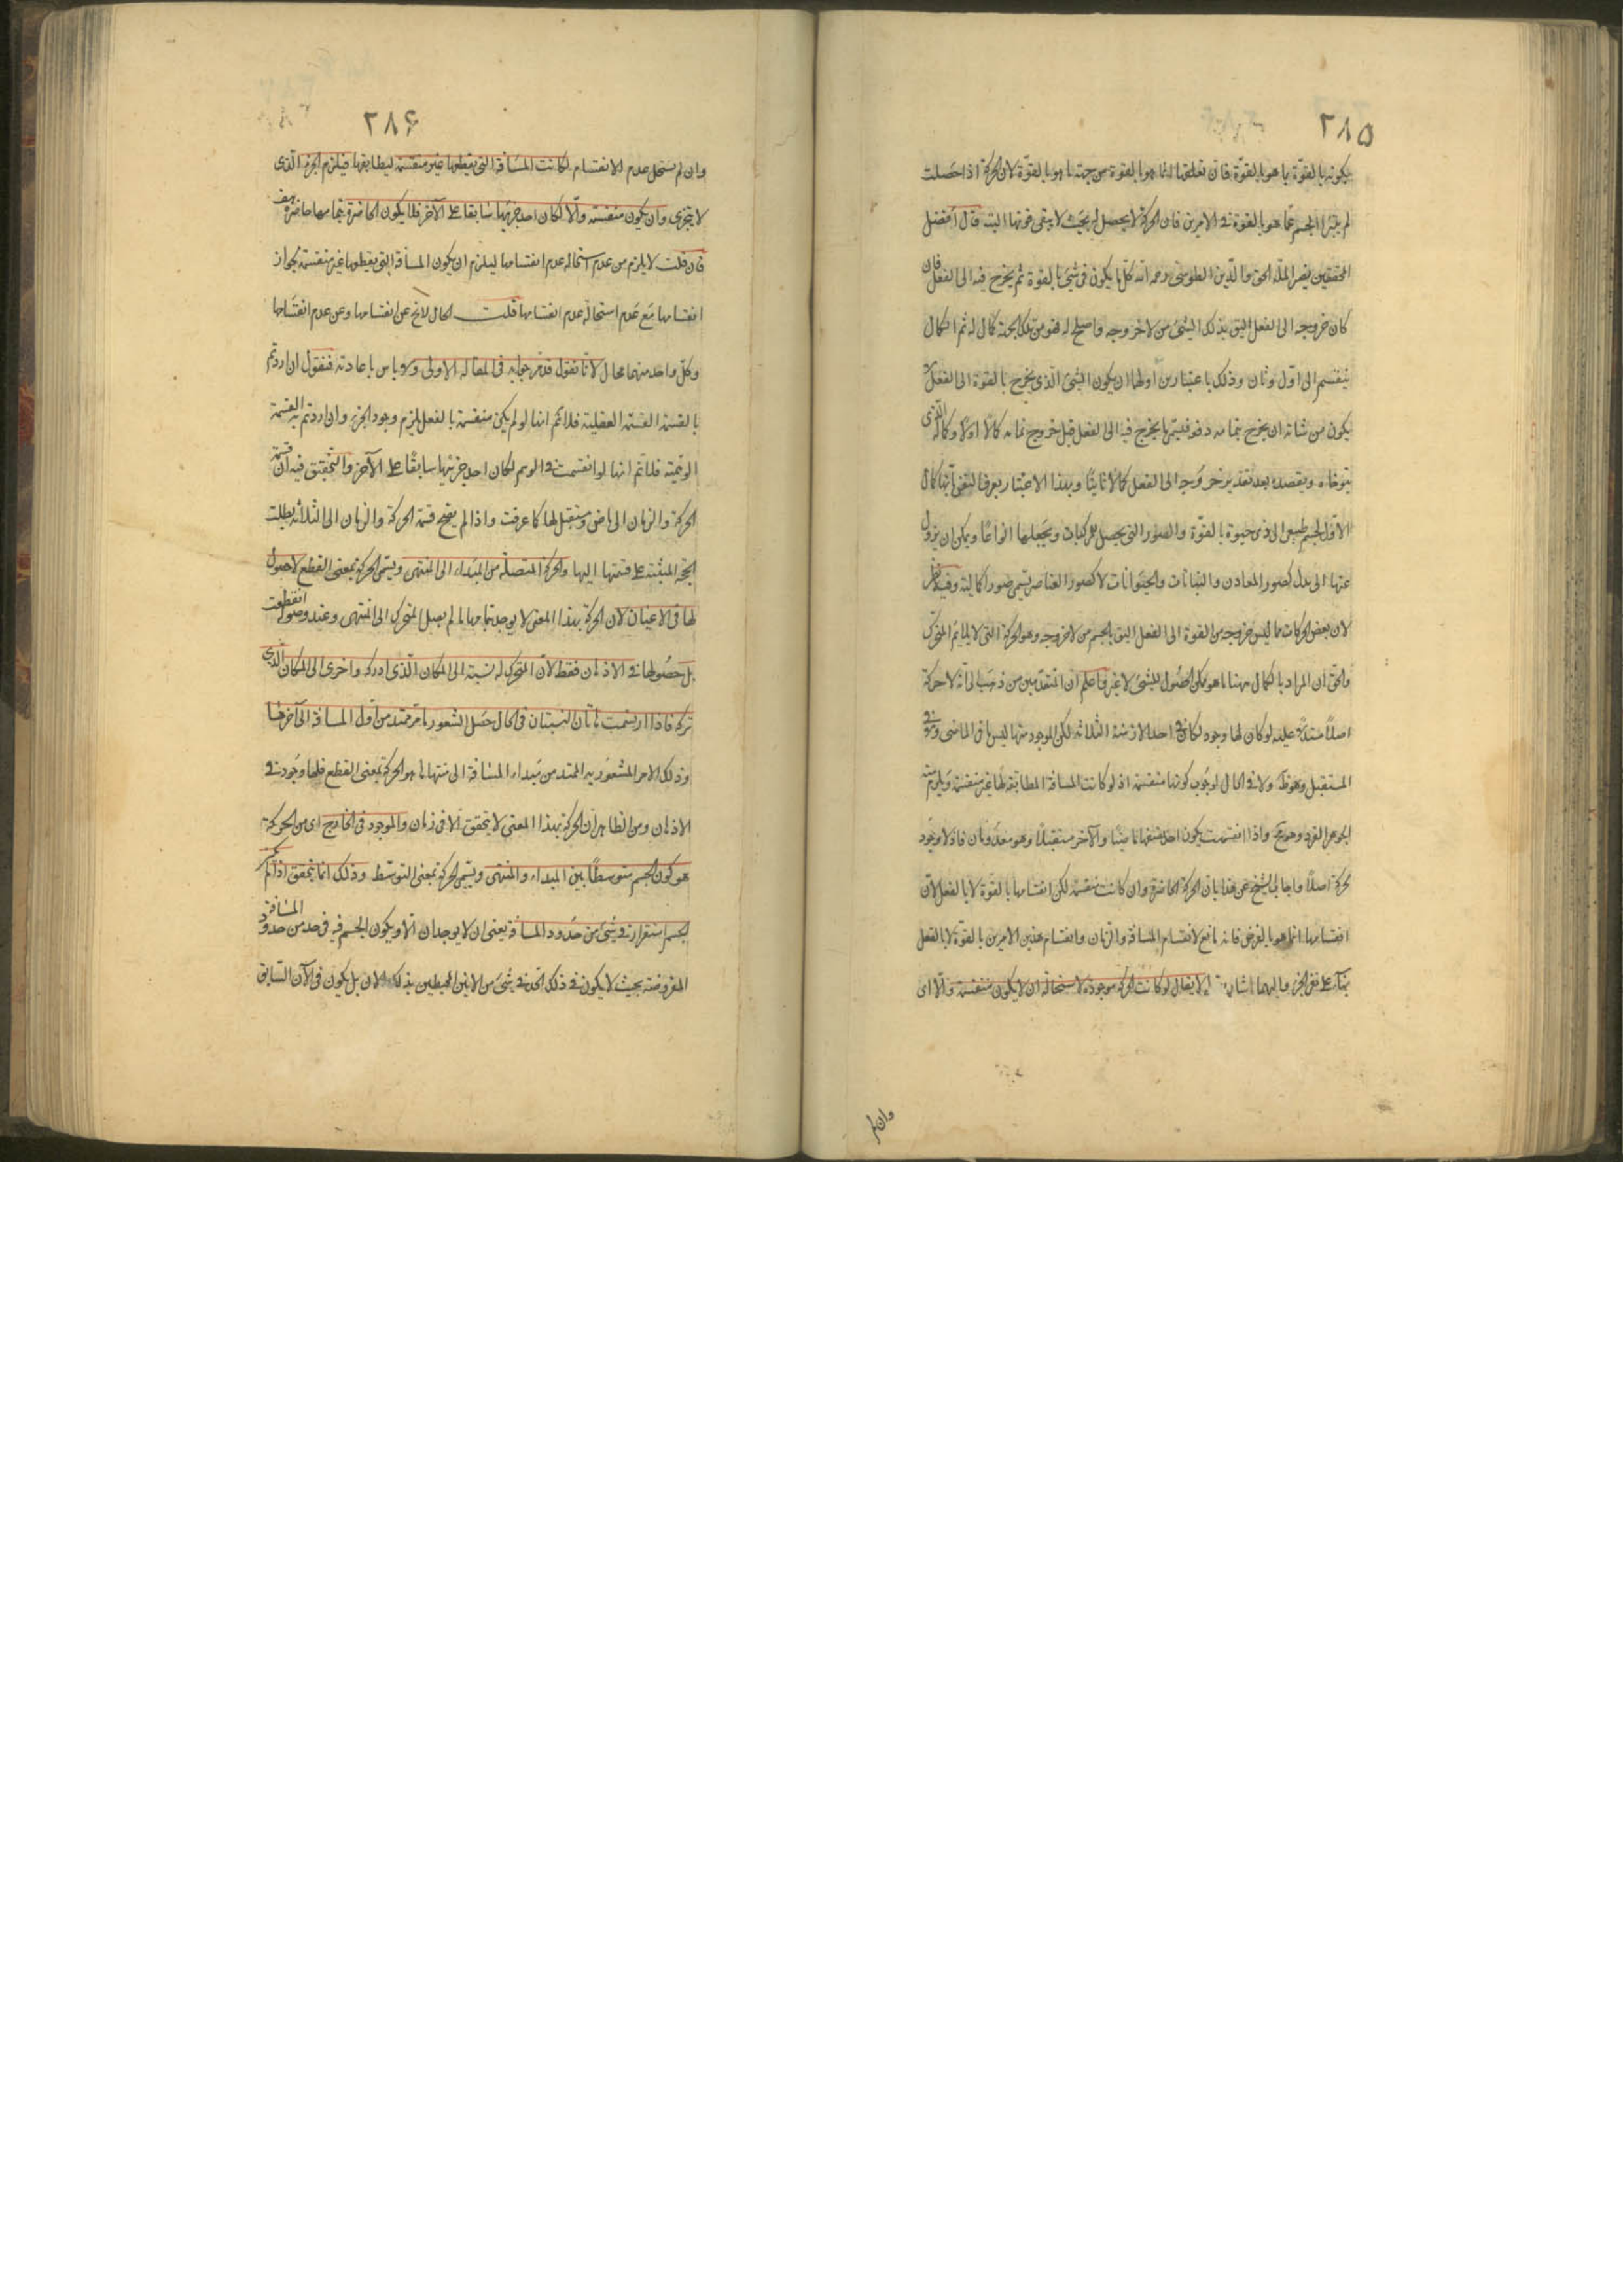 ٢٨٥
يكونه بالقوّة ما هو بالقوّة فان تعلقها انما هو بالقوة من جهة ما هو بالقوّة لان الحركة اذا حصلت
لم يتبرا الجسم عمّا هو بالقوة فى الامرين فان الحركة لا يحصل له بحيث لا يبقى قوتها البتة قال افضل
المحققين نصير الملّة الحق والدّين الطوسى رحمه اللّه كلّ ما يكون فى شئ بالقوة ثم يخرج فيه الى الفعل فان
كان خروجه الى الفعل اليق بذلك الشئ من لا خروجه واصلح له فهو من تلك الجهة كمال له ثم الكمال
ينقسم الى اوّل وثان وذلك باعتبارين اولهما ان يكون الشئ الّذى يخرج بالقوة الى الفعل
يكون من شانه ان يخرج بتمامه دفعة فيسمى ما يخرج فيه الى الفعل قبل خروج تمامه كمالا اولا وكماله الّذى
يتوخاه ويقصده بعد تقدير خروجه الى الفعل كمالا ثانيا وبهذا الاعتبار يعرف النفس بانّها كمال
الاوّل لجسم طبيعى آلى ذى حيوة بالقوّة والصور التى يحصل للمركبات ويجعلها انواعًا ويمكن ان يزول
عنها الى بدل كصور المعادن والنباتات والحيوانات لا كصور العناصر يسمى صورا كمالية وفيه نظر
لان بعض الحركات مما ليس خروجه من القوة الى الفعل اليق بالجسم من لا خروجه وهو الحركة التى لا يلايم المتحرك
والحق ان المراد بالكمال ههنا ما هو ممكن الحصول للشئ لا غير فاعلم ان المتقدمين من ذهب الى انّه لا حركة
اصلاً مستدلاً عليه لو كان لها وجود لكان فى احد الازمنة الثلاثة لكن الموجود منها ليس فى الماضى ولا فى
المستقبل وهو ظ ولا فى الحال لوجوب كونها منقسمة اذ لو كانت المسافة المطابقة لها غير منقسمة ويلزم منه
الجوهر الفرد وهو مح واذا انقسمت يكون احد نصفيها ماضيا والآخر مستقبلاً وهو معدومان فاذ لا وجود
لحركة اصلاً واجاب الشيخ عن هذا بان الحركة الحاضرة وان كانت منقسمة لكن انقسامها بالقوة لا بالفعل لان
انقسامها انما هو بالفرض فانه تابع لانقسام المسافة والزمان وانقسام هذين الامرين بالقوة لا بالفعل
بناءً على نفى الجزء واليهما اشار بقوله لا يقال لو كانت الحركة موجودة لاستحال ان لا يكون منقسمة والّا اى
وان لم
٢٨۶
وان لم يستحل عدم الانقسام لكانت المسافة التى يقطعها غير منقسمة لتطابقها فيلزم الجزء الّذى
لا يتجزى وان يكون منقسمة والّا لكان احد جزئيها سابقا على الآخر فلا يكون الحاضرة بتمامها حاضرة هف
فان قلت لا يلزم من عدم استحالة عدم انقسامها ليلزم ان يكون المسافة التى يقطعها غير منقسمة لجواز
انقسامها مع عدم استحالة عدم انقسامها قلت الحال لا يخ عن انقسامها وعن عدم انقسامها
وكلّ واحد منهما محال لانا نقول قد مرّ جوابه فى المقالة الاولى ولا باس باعادته فنقول ان اردتم
بالقسمة القسمة العقلية فلا نم انها لو لم يكن منقسمة بالفعل يلزم وجود الجزء وان اردتم به القسمة
الوهمية فلا نم انها لو انقسمت فى الوهم لكان احد جزئيها سابقًا على الآخر والتحقيق فيه ان قسمة
الحركة والزمان الى ماض ومستقبل لها كما عرفت واذا لم يصح قسمة الحركة والزمان الى الثلاثة بطلت
الحجة المبنية على قسمتها اليها والحركة المتصلة من المبداء الى المنتهى ويسمى الحركة بمعنى القطع لا حصول
لها فى الاعيان لان الحركة بهذا المعنى لا يوجد بتمامها ما لم يصل المتحرك الى المنتهى وعند وصوله انقطعت
بل حصولها فى الاذهان فقط لان المتحرك له نسبة الى المكان الّذى ادركه واخرى الى المكان الّذى
تركه فاذا ارتسمت هاتان النسبتان فى الخيال حصل الشعور بامر ممتد من اول المسافة الى آخرها
وذلك الامر المشعور به الممتد من مبداء المسافة الى منتهاها هو الحركة بمعنى القطع فلها وجود فى
الاذهان ومن الظاهر ان الحركة بهذا المعنى لا يتحقق الّا فى زمان والموجود فى الخارج اى من الحركة
هو كون الجسم متوسطًا بين المبداء والمنتهى ويسمى الحركة بمعنى التوسّط وذلك انما يتحقق اذا لم يكن
للجسم استقرار فى شئ من حدود المسافة يعنى ان لا يوجد ان الّا ويكون الجسم فيه فى حد من حدود المسافة
المفروضة بحيث لا يكون فى ذلك الحد فى شئ من الانين المحيطين بذلك الان بل يكون فى الآن السّابق